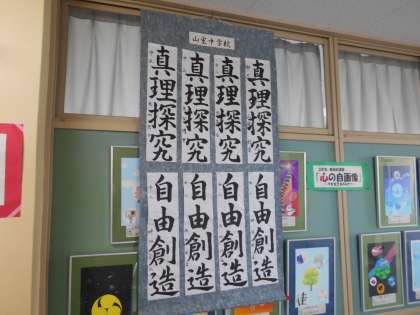 山室中学校
真理探究
真理探究
真理探究
真理探究
自由創造
自由創造
自由創造
自由創造
「心の自画像」